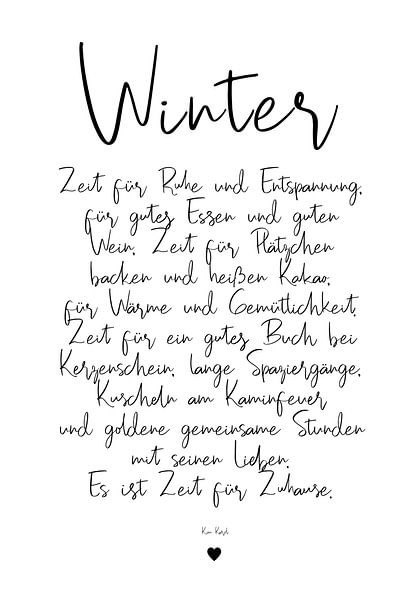 Winter
Zeit für Ruhe und Entspannung,
für gutes Essen und guten
Wein. Zeit für Plätzchen
backen und heißen Kakao,
für Wärme und Gemütlichkeit.
Zeit für ein gutes Buch bei
Kerzenschein, lange Spaziergänge,
Kuscheln am Kaminfeuer
und goldene gemeinsame Stunden
mit seinen Lieben.
Es ist Zeit für Zuhause.